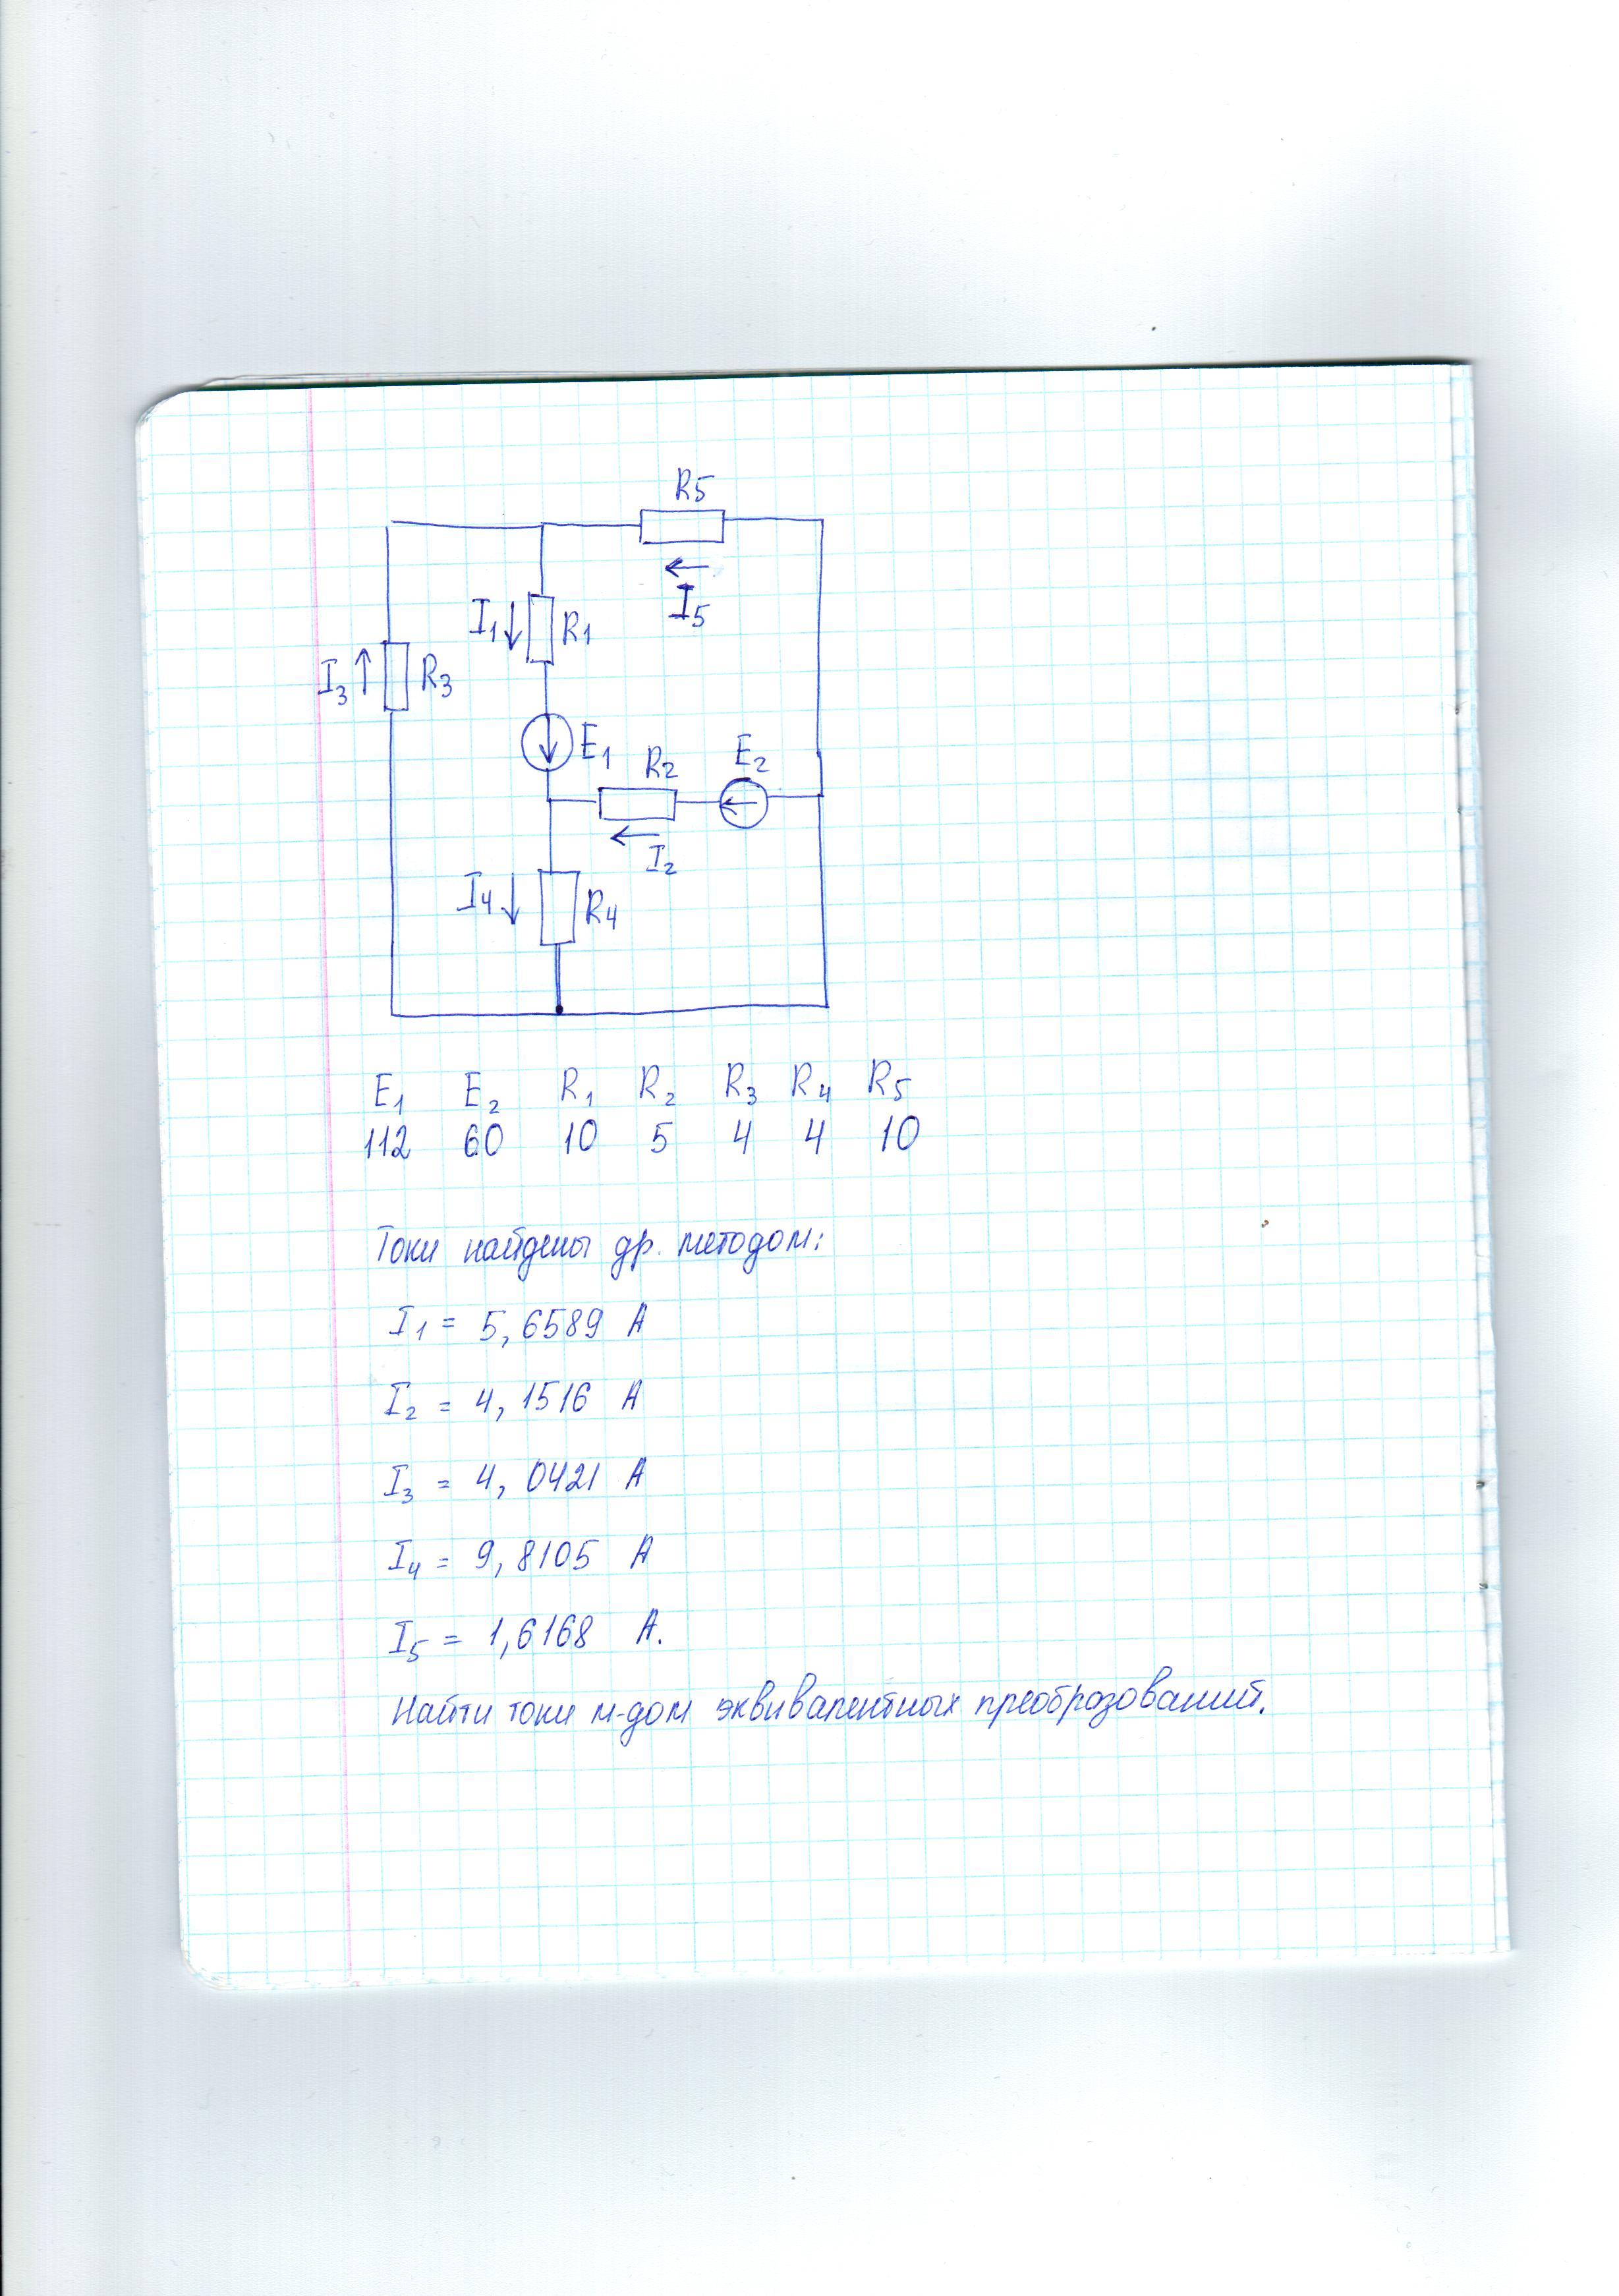 R5
I5
I1 R1
I3 R3
E1
R2 E2
I2
I4 R4
E1 E2 R1 R2 R3 R4 R5
112 60 10 5 4 4 10
Токи найдены др. методом:
I1 = 5,6589 А
I2 = 4,1516 А
I3 = 4,0421 А
I4 = 9,8105 А
I5 = 1,6168 А.
Найти токи м-дом эквивалентных преобразований.